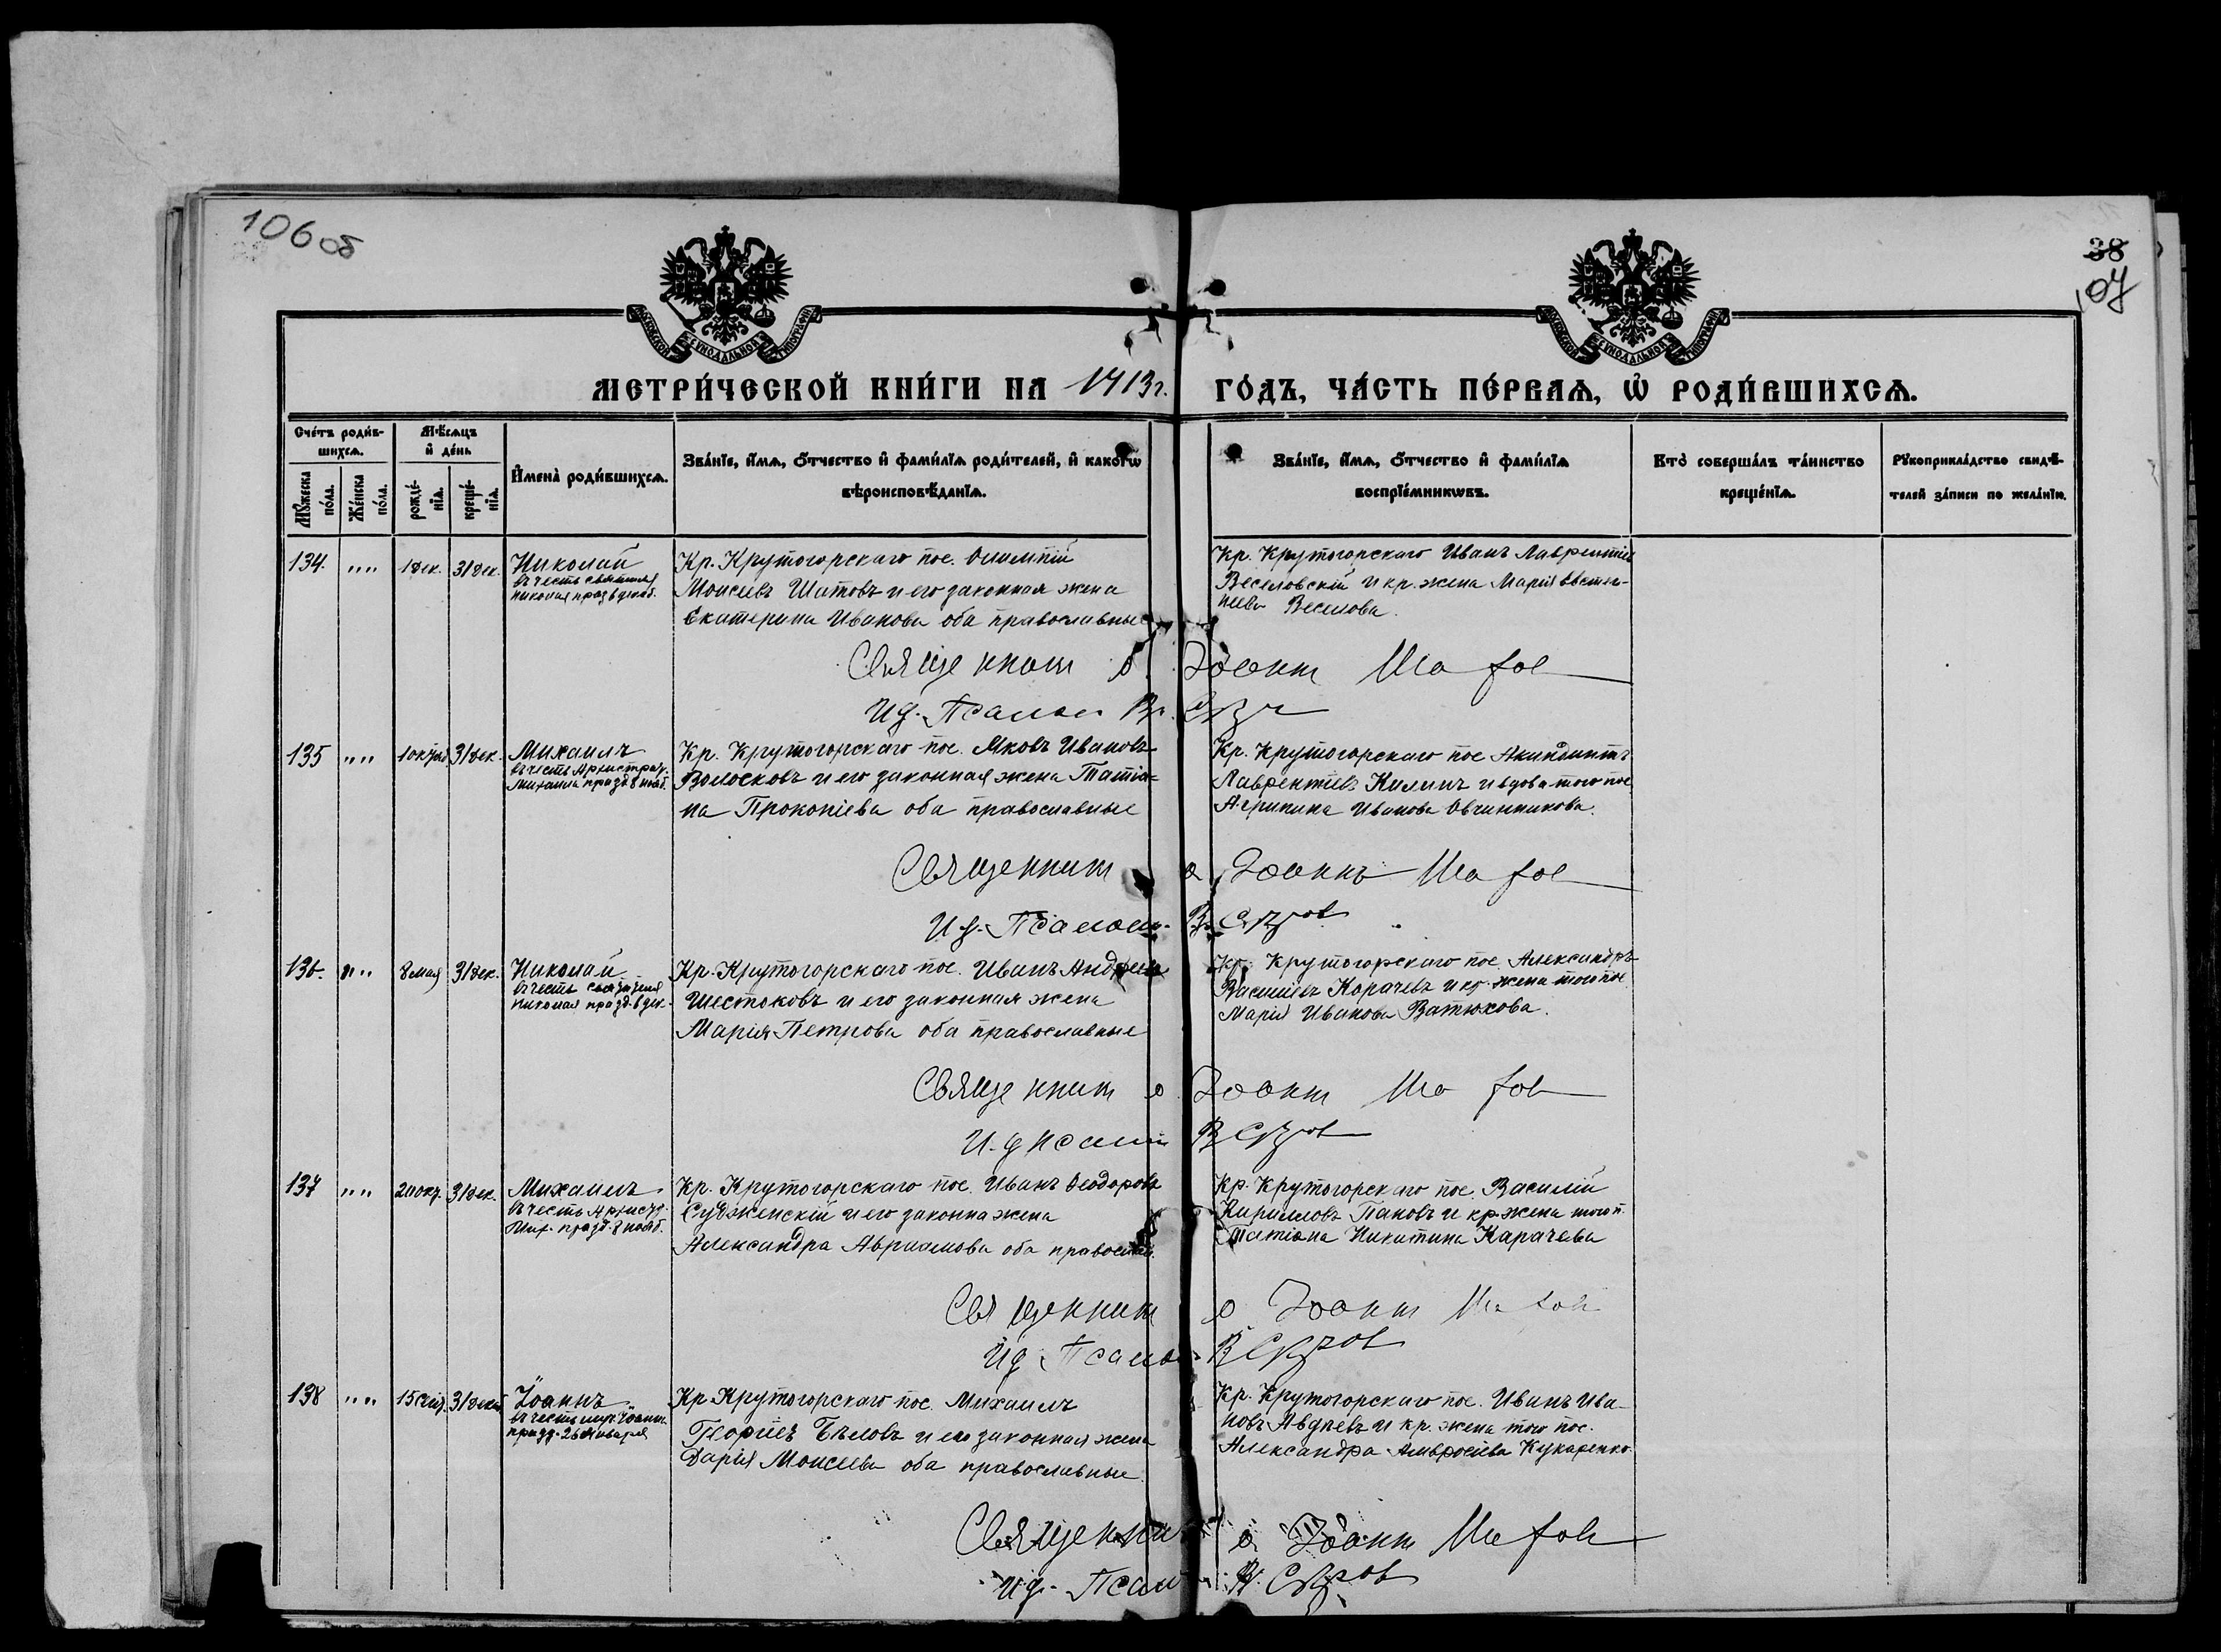 106 об
38
107
МОСКОВСКОЙ СѴНОДАЛЬНОЙ ТИПОГРАФІИ
МОСКОВСКОЙ СѴНОДАЛЬНОЙ ТИПОГРАФІИ
МЕТРИ́ЧЕСКОЙ КНИ́ГИ НА 1913 г. ГО́ДЪ, ЧА́СТЬ ПЕ́РВАѦ, Ѽ РОДИ́ВШИХСѦ.
Сче́тъ роди́в-
шихсѧ.
Мꙋ́жеска
по́ла.
Же́нска
по́ла.
Мѣ́сѧцъ
и҆ де́нь
рожде́-
нїѧ.
креще́-
нїѧ.
И҆мена̀ роди́вшихсѧ.
Зва́нїе, и҆́мѧ, ѻ҆́тчество и҆ фами́лїѧ роди́телей, и҆ како́гѡ
вѣроисповѣ́данїѧ.
Зва́нїе, и҆́мѧ, ѻ҆́тчество и҆ фами́лїѧ
воспрїе́мникѡвъ.
Кто̀ соверша́лъ та́инство
креще́нїѧ.
Рꙋкоприкла́дство свидѣ́-
телей за́писи по жела́нїю.
134. „ „ 1 дек. 31 дек. Николай
въ честь святителя
Николая празд. 6 декаб.
Кр. Крутогорскаго пос. Олимпій
Моисеевъ Шитовъ и его законная жена
Екатерина Иванова оба православные
Кр. Крутогорскаго Иванъ Лаврентіев
Веселовскій и кр. жена Марія Евстиг-
неева Веселова.
Священник о. Іоанн
И.д. Псалом. В.
135 „ „ 31 дек. Михаилъ
въ честь Архистрат.
Михаила празд. 8 нояб.
Кр. Крутогорскаго пос. Яковъ Ивановъ
Волосковъ и его законная жена Татіа-
на Прокопіева оба православные
Кр. Крутогорскаго пос Акиндинтъ
Лаврентіевъ Килинъ и вдова того пос
Агрипина Иванова Овчинникова.
Священник о. Іоаннъ
И.д. Псалом. В.
136. „ „ 8 мая 31 дек. Николай
въ честь святителя
Николая празд. 6 дек.
Кр. Крутогорскаго пос. Иванъ Андреевъ
Шестоковъ и его законная жена
Марія Петрова оба православные
Кр. Крутогорскаго пос. Александръ
Васильевъ Корачевъ и кр. жена того пос.
Марія Иванова Ватюкова.
Священник о. Іоанн
И.д. Псалом В
137 „ „ 20 окт. 31 дек. Михаилъ
въ честь Архистр.
Мих. празд. 8 нояб.
Кр. Крутогорскаго пос. Иванъ Ѳеодоровъ
Судженскій и его законна жена
Александра Авриамова оба православ.
Кр. Крутогорскаго пос. Василій
Кирилловъ Пановъ и кр жена того п.
Татіана Никитина Карачева
Священник о Іоанн
И.д. Псалом. В
138 „ „ 15 31 декаб Іоаннъ
въ честь Іоанна
празд. 26 января
Кр. Крутогорскаго пос. Михаилъ
Георгіевъ Бѣловъ и его законная жена
Дарія Моисеева оба православные
Кр. Крутогорскаго пос. Иванъ Ива-
новъ Авдѣевъ и кр. жена того пос.
Александра Амвросіева Кукаренко
Священник о. Іоанн
И.д. Псалом. В.